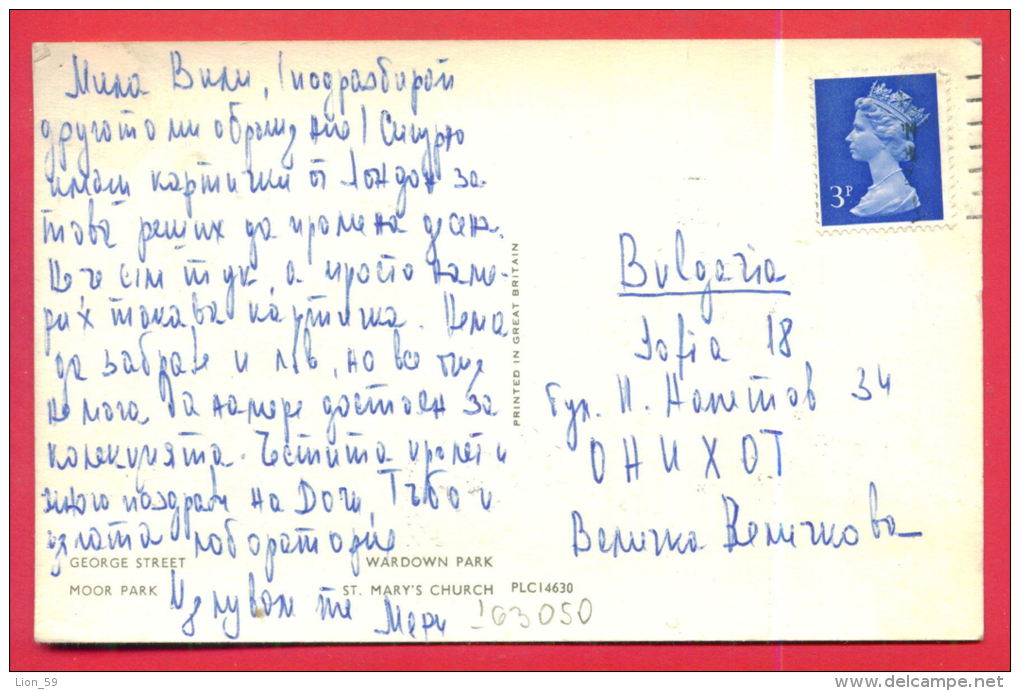 Мила Вили, (подразбирай
другото ми обръщение) Сигурно
имаш картички от Лондон за-
това реших да променя
Не че съм тук, а просто наме-
рих такава картичка. Няма
да забравя и лъв, но все още
не мога да намеря достоен за
колекцията. Честита пролет и
много поздрави на Дочи, и
цялата лаборатория.
Целувам те
Мери
GEORGE STREET WARDOWN PARK
MOOR PARK ST. MARY'S CHURCH PLC14630
163050
PRINTED IN GREAT BRITAIN
3P
Bulgaria
Sofia 18
бул. И. Напетов 34
ОНИХОТ
Величка Величкова
Lion_59
www.delcampe.net